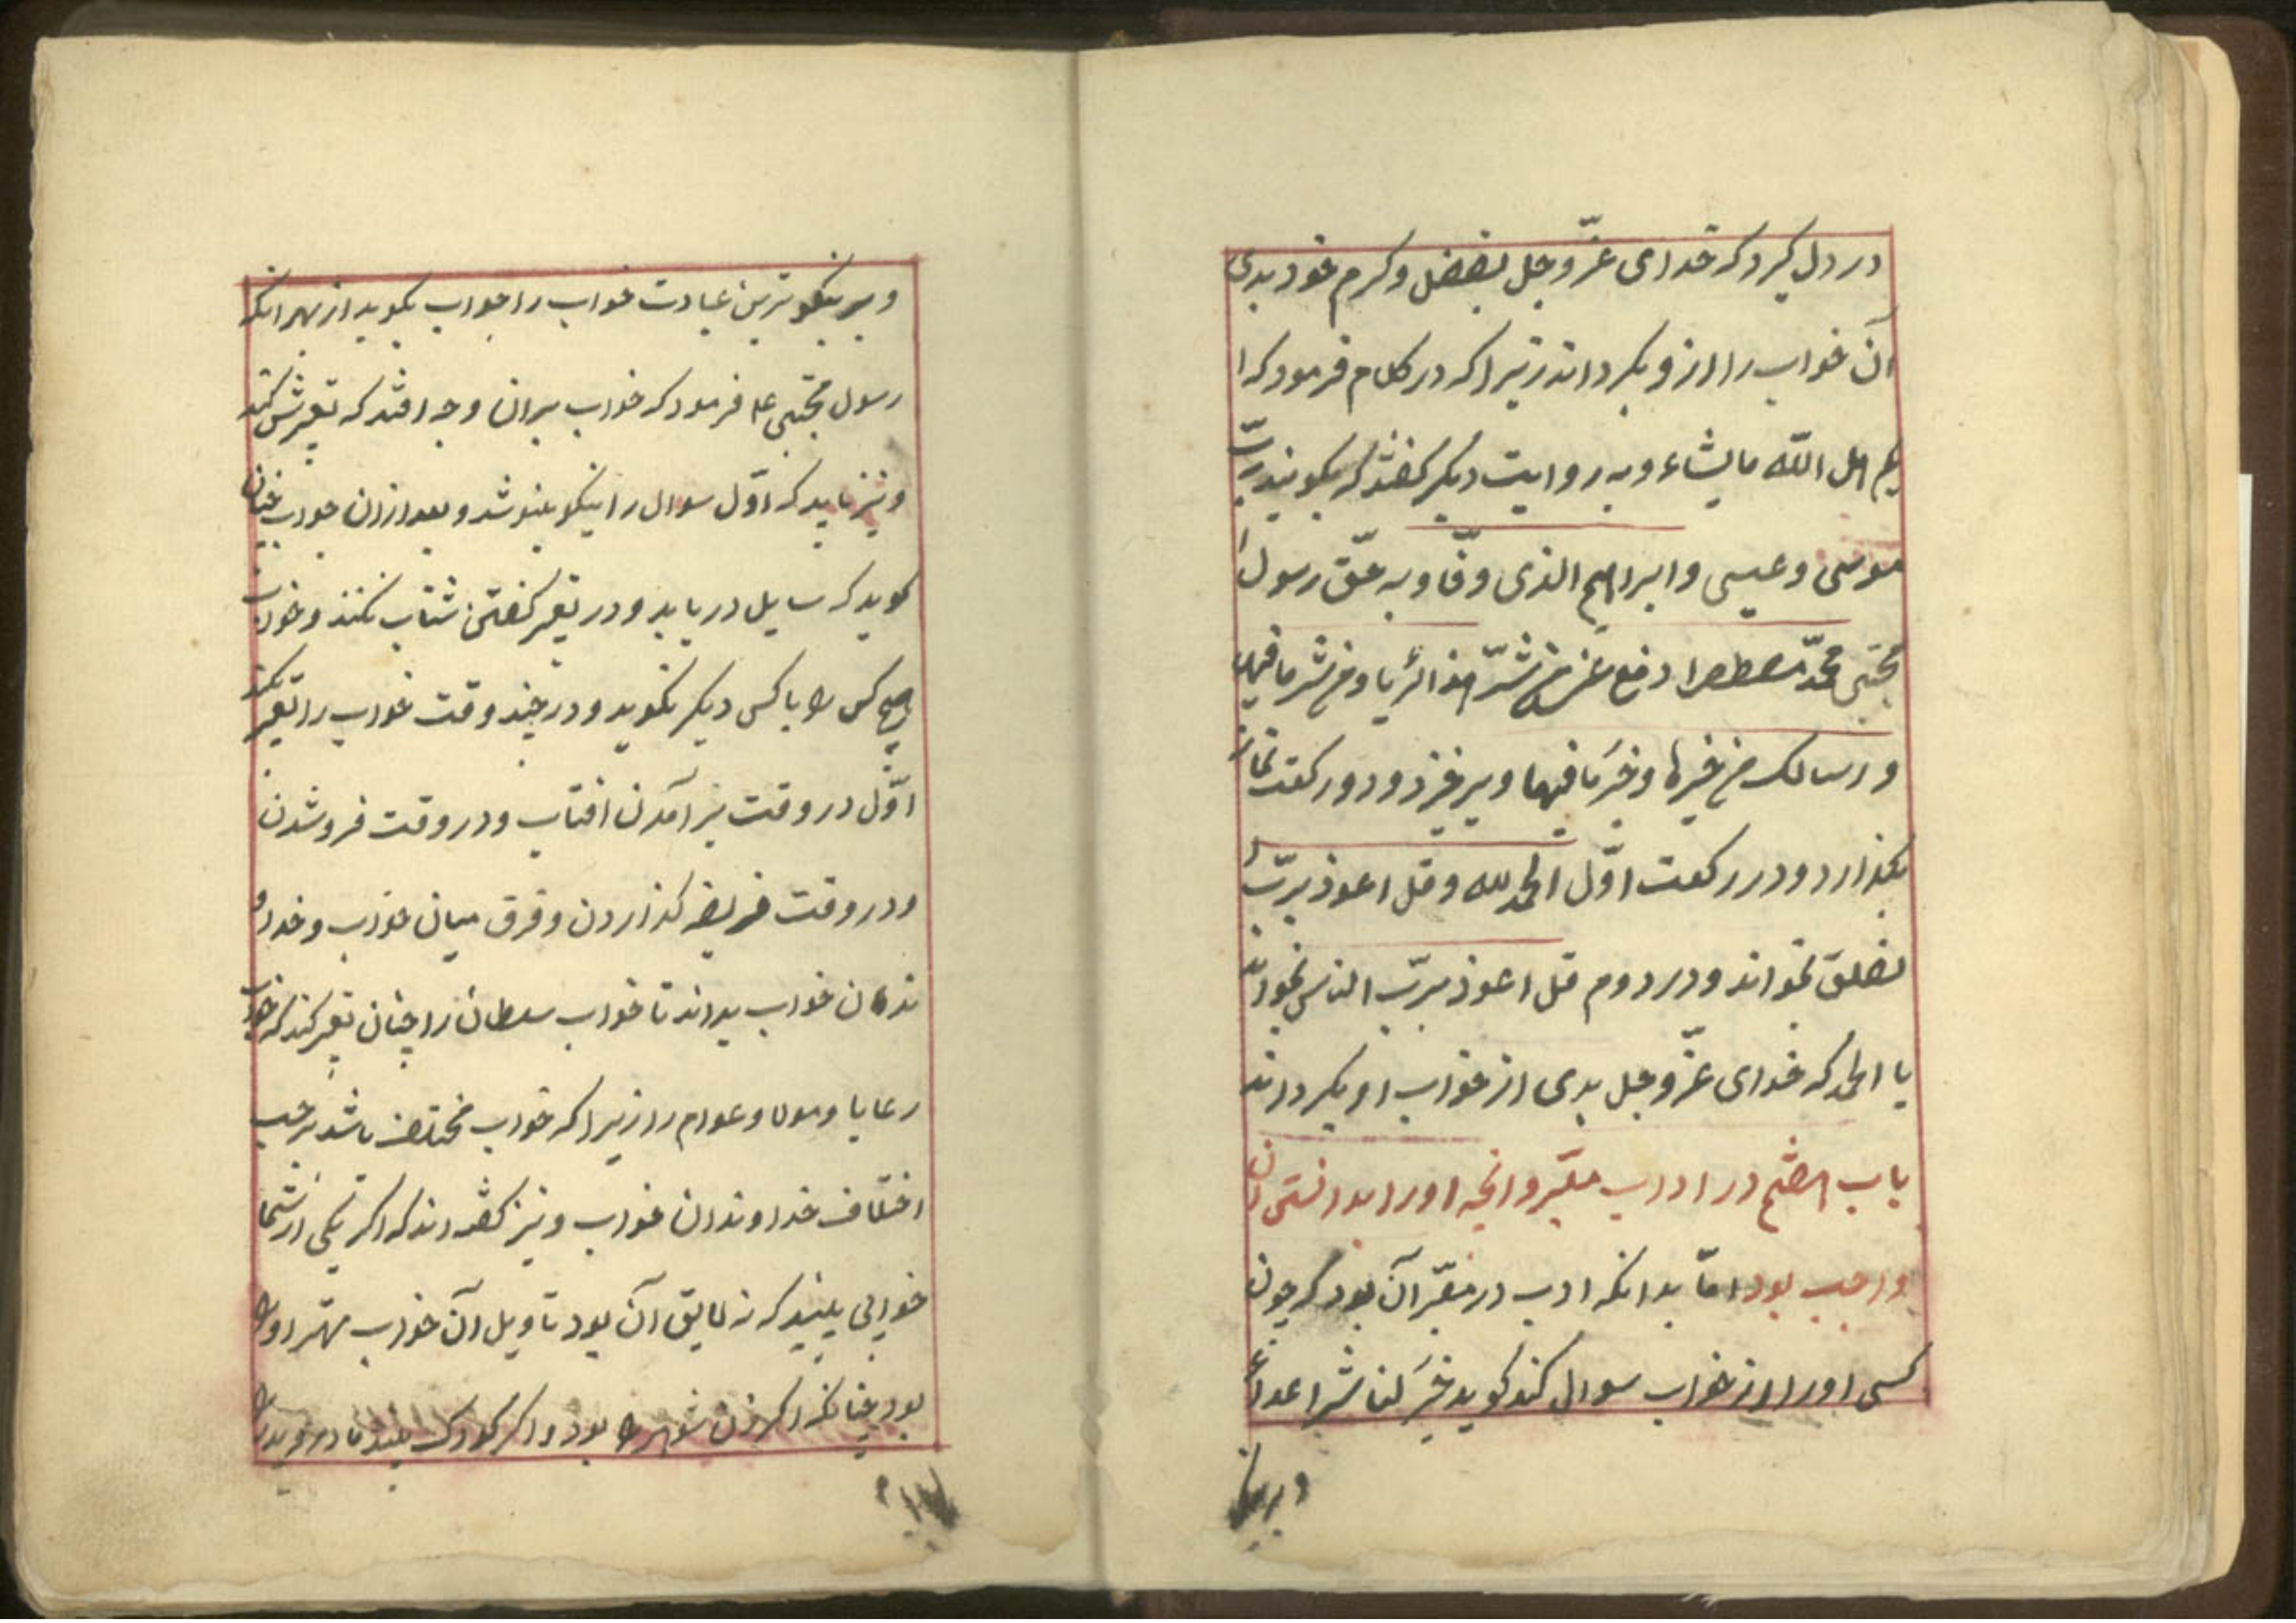 در دل گیرد که خدای عزّ و جل بفضل و کرم خود بدی
آن خواب را از و بگرداند زیرا که در کلام فرمود که ا
اهل الله ما یشاء و به روایت دیگر گفته‌اند که بگویند بربّ
موسی و عیسی و ابراهیم الذی وفّا و به حق رسول
مجتبی محمّد مصطفی ادفع عنی من شرّ هذا الرّیا و من شر ما فیها
و رسالک من خیرها و خیر ما فیها و برخیزد و دو رکعت نماز
بگذارد و در رکعت اوّل الحمد لله و قل اعوذ بربّ ا
لفلق بخواند و در دوم قل اعوذ بربّ الناس بخواند
با الحمد که خدای عزّ و جل بدی از خواب او بگرداند
باب در اداب معبّر و انچه او را بدانستن ان
واجب بود امّا بدانکه ادب در معبّر آن بود که چون
کسی او را از خواب سوال کند گوید خیر لنا شر اعدائنا
و بر نیکو
و بر نیکوترین عبادت خواب را جواب بگوید از بهر انکه
رسول مجتبی ع فرمود که خواب بران وجه افتد که تعبیرش کنند
و نیز باید که اوّل سوال را نیکو بشنود و بعد از ان جواب چنان
گوید که سایل دریابد و در تعبیر گفتن شتاب نکند و خواب
هیچ کس را با کس دیگر نگوید و در چند وقت خواب را تعبیر نکند
اوّل در وقت بر آمدن افتاب و در وقت فرو شدن
و در وقت فریضه گذاردن و فرق میان خواب و خداو
ندکان خواب بداند تا خواب سلطان را چنان تعبیر کند که خواب
رعایا و عوام را زیرا که خواب مختلف باشد بر حسب
اختلاف خداوندان خواب و نیز گفته‌اند که اگر یکی از شما
خوابی بیند که نه لایق آن بود تاویل آن خواب مهتر او را
بود چنانکه اگر زن شوهر را بود و اگر کودک بیند مادر و پدر را